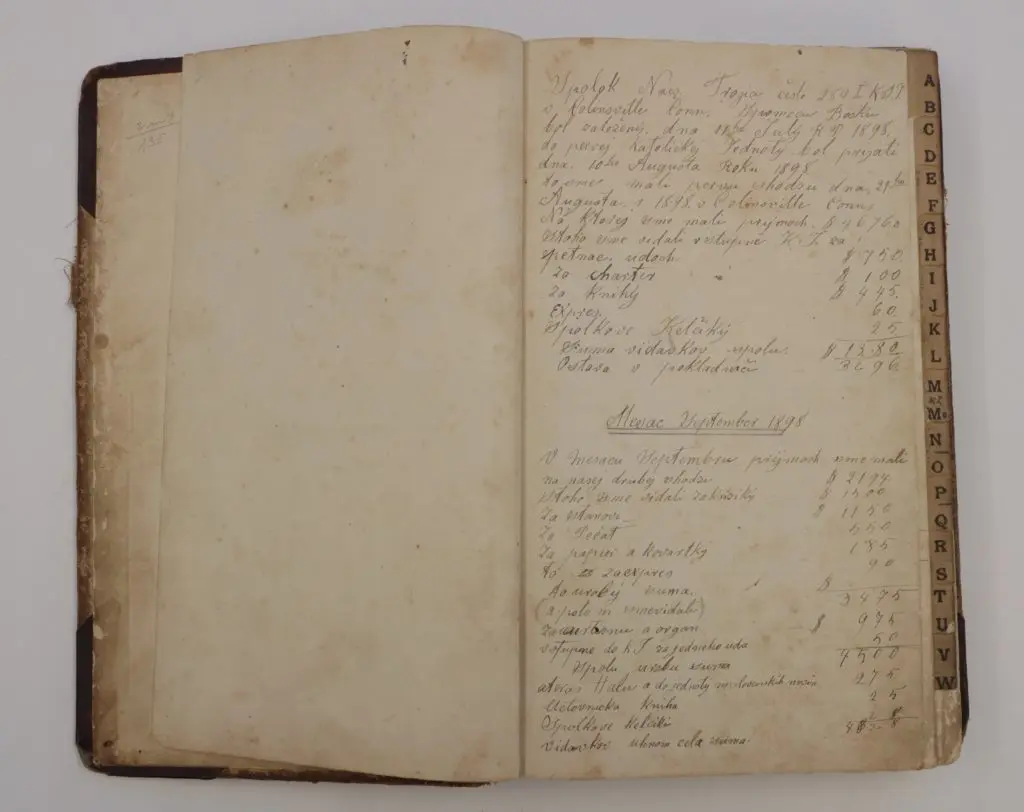 Spolok Najs. Trojca čislo 250 I K S J
v Colinsville Conn. Spomocu Boskú
bol založený dna 11ho July R P 1898,
do pervej Katolickej Jednoty bol prijati
dna 10ho Augusta Roku 1898
to sme mali pervu shodzu dna 21ho
Augusta r 1898 v Colinsville Conn
Na ktorej sme mali prijmoch $ 46760
stoho sme vidali vstupne K. J. za
petnac udoch. $ 750
Za charter " $ 100
Za Knihy $ 445.
Expres 60
Spolkove Kelčiky 25
Suma vidavkov spolu. $ 1380
Ostava v pokladnici 3296
Mesac September 1898
V mesacu Septembru prijmoch sme mali
na nasej druhej shodzu $ 2194
stoho sme vidali $ 1500
Za stanovi $ 1150
Za Pečat 550
Za papier a kovertky 185
to za expres 90
to urobi suma. $ 3475
(a polo m smevidali)
a organ $ 975
vstupne do K. J. za jedneho uda 50
Spolu urobi suma 4500
Halu a do jednoty 275
Uctovnicka Kniha 25
Spolkove Kelčiki
vidavkov cela suma.
A
B
C
D
E
F
G
H
I
J
K
L
M
Mc
N
O
P
Q
R
S
T
U
V
W